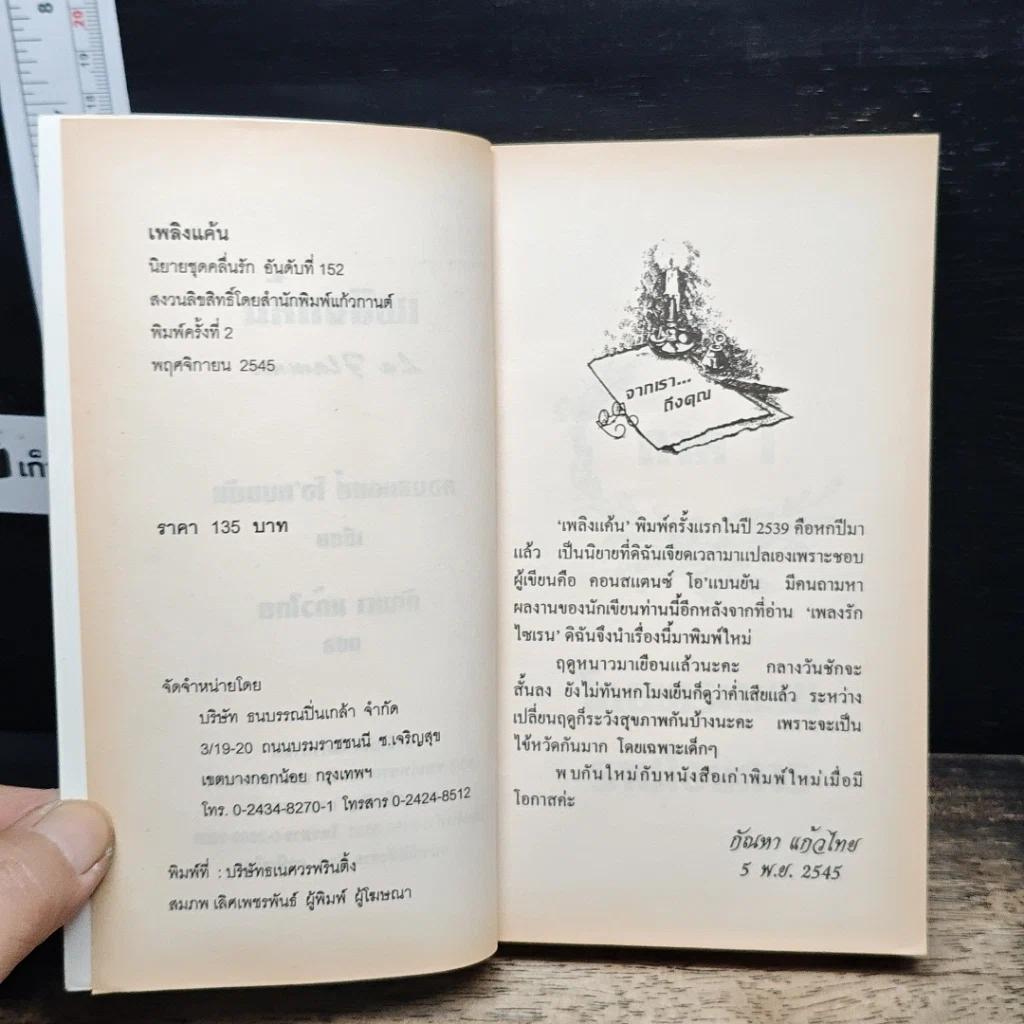 เพลิงแค้น
นิยายชุดคลื่นรัก อันดับที่ 152
สงวนลิขสิทธิ์โดยสำนักพิมพ์แก้วกานต์
พิมพ์ครั้งที่ 2
พฤศจิกายน 2545
ราคา 135 บาท
จัดจำหน่ายโดย
บริษัท ธนบรรณปิ่นเกล้า จำกัด
3/19-20 ถนนบรมราชชนนี ซ.เจริญสุข
เขตบางกอกน้อย กรุงเทพฯ
โทร. 0-2434-8270-1 โทรสาร 0-2424-8512
พิมพ์ที่ : บริษัทธเนศวรพรินติ้ง
สมภพ เลิศเพชรพันธ์ ผู้พิมพ์ ผู้โฆษณา
จากเรา...
ถึงคุณ
'เพลิงแค้น' พิมพ์ครั้งแรกในปี 2539 คือหกปีมา
แล้ว เป็นนิยายที่ดิฉันเจียดเวลามาแปลเองเพราะชอบ
ผู้เขียนคือ คอนสแตนซ์ โอ'แบนยัน มีคนถามหา
ผลงานของนักเขียนท่านนี้อีกหลังจากที่อ่าน 'เพลงรัก
ไซเรน' ดิฉันจึงนำเรื่องนี้มาพิมพ์ใหม่
ฤดูหนาวมาเยือนแล้วนะคะ กลางวันชักจะ
สั้นลง ยังไม่ทันหกโมงเย็นก็ดูว่าค่ำเสียแล้ว ระหว่าง
เปลี่ยนฤดูก็ระวังสุขภาพกันบ้างนะคะ เพราะจะเป็น
ไข้หวัดกันมาก โดยเฉพาะเด็กๆ
พบกันใหม่กับหนังสือเก่าพิมพ์ใหม่เมื่อมี
โอกาสค่ะ
กัณหา แก้วไทย
5 พ.ย. 2545
8
20
19
18
เก็